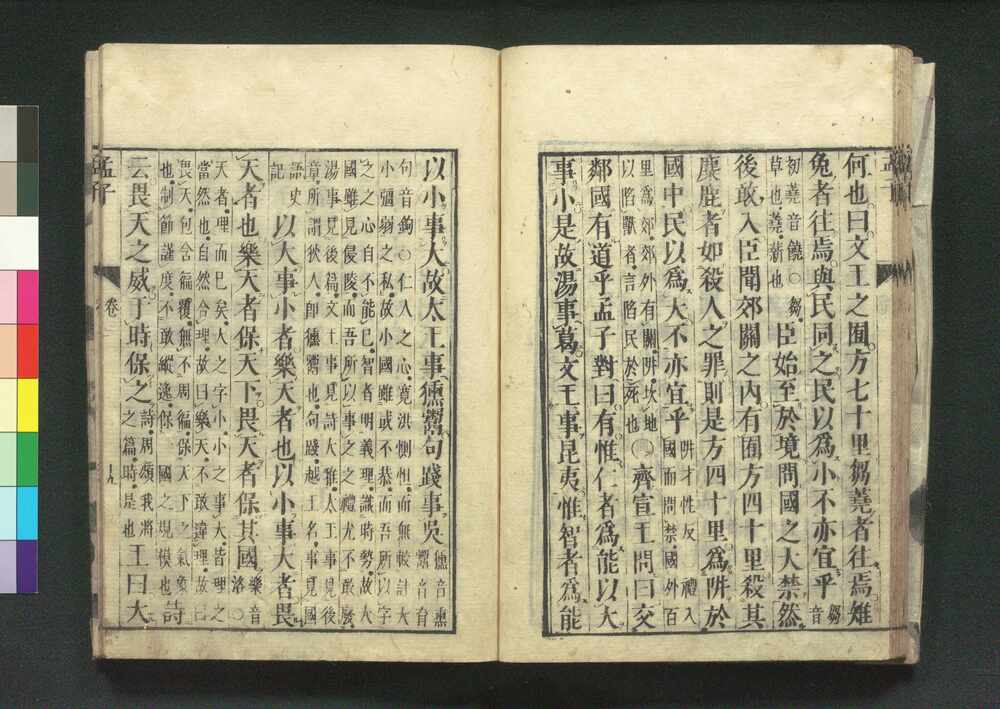 何也曰文王之囿方七十里芻蕘者往焉雉
兔者往焉與民同之民以爲小不亦宜乎
芻
音
初蕘音饒○芻
草也蕘薪也
臣始至於境問國之大禁然
後敢入臣聞郊關之內有囿方四十里殺其
麋鹿者如殺人之罪則是方四十里爲阱於
國中民以爲大不亦宜乎
阱才性反○禮入
國而問禁國外百
里爲郊郊外有關阱坎地
以陷獸者言陷民於死也
○齊宣王問曰交
鄰國有道乎孟子對曰有惟仁者爲能以大
事小是故湯事葛文王事昆夷惟智者爲能
以小事大故太王事獯鬻句踐事吳
獯音熏
鬻音育
句音鉤○仁人之心寬洪惻怛而無較計大
小彊弱之私故小國雖或不恭而吾所以字
之之心自不能已智者明義理識時勢故大
國雖見侵陵而吾所以事之之禮尤不敢廢
湯事見後篇文王事見詩大雅太王事見後
章所謂狄人即獯鬻也句踐越王名事見國
語史
記
以大事小者樂天者也以小事大者畏
天者也樂天者保天下畏天者保其國
樂音
洛○
天者理而已矣大之字小小之事大皆理之
當然也自然合理故曰樂天不敢違理故曰
畏天包含徧覆無不周徧保天下之氣象
也制節謹度不敢縱逸保一國之規模也
詩
云畏天之威于時保之
詩周頌我將
之篇時是也
王曰大
孟子
卷一
十九